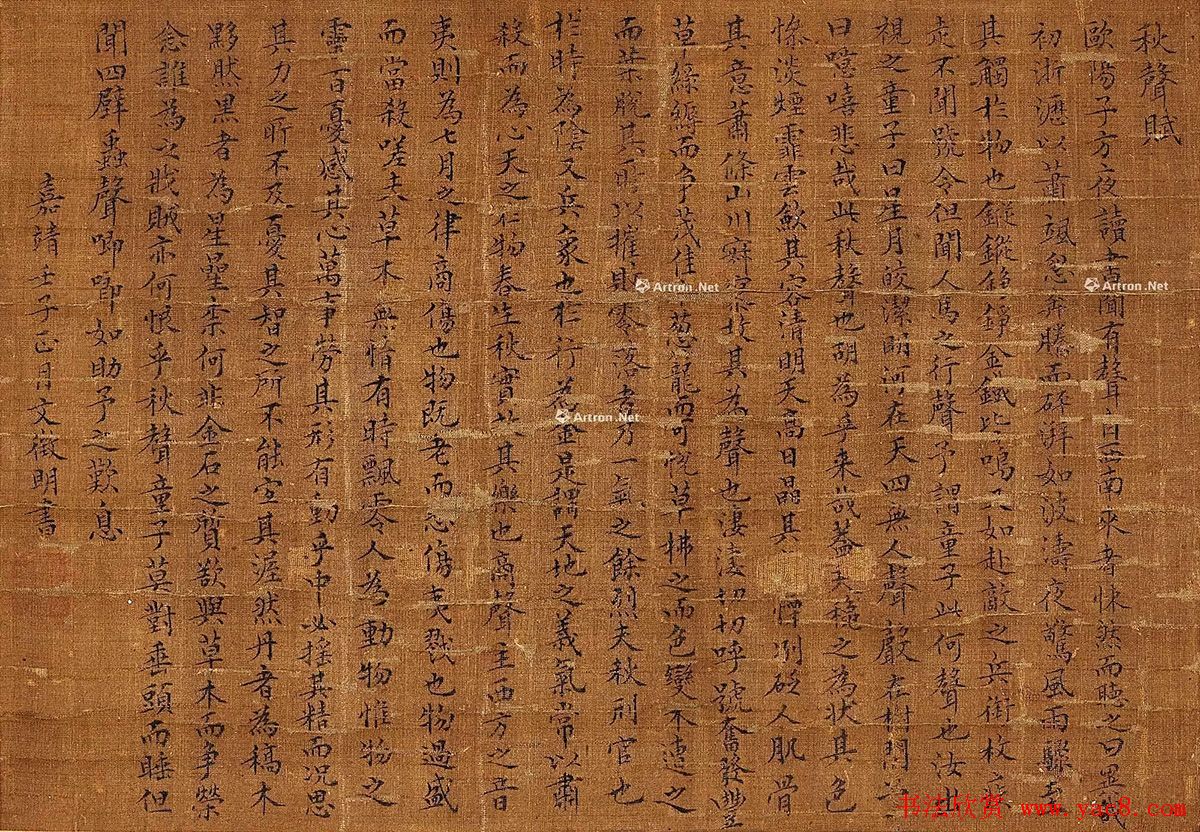 秋聲賦
歐陽子方夜讀書聞有聲自西南來者悚然而聽之曰異哉
初淅瀝以蕭颯忽奔騰而砰湃如波濤夜驚風雨驟至
其觸於物也鏦鏦錚錚金鐵皆鳴又如赴敵之兵銜枚疾
走不聞號令但聞人馬之行聲予謂童子此何聲也汝出
視之童子曰星月皎潔明河在天四無人聲聲在樹間予
曰噫嘻悲哉此秋聲也胡為乎來哉蓋夫穐之為狀其色
慘淡煙霏雲斂其容清明天高日晶其慄冽砭人肌骨
其意蕭條山川寂寥故其為聲也淒淒切切呼號奮發豐
草綠縟而爭茂佳木葱蘢而可悅草拂之而色變木遭之
而葉脫其所以摧敗零落者乃一氣之餘烈夫秋刑官也
於時為陰又兵象也於行為金是謂天地之義氣常以肅
殺而為心天之於物春生秋實故其樂也商聲主西方之音
夷則為七月之律商傷也物既老而悲傷夷戮也物過盛
而當殺嗟夫草木無情有時飄零人為動物惟物之
靈百憂感其心萬事勞其形有動乎中必搖其精而況思
其力之所不及憂其智之所不能宜其渥然丹者為槁木
黟然黑者為星星柰何非金石之質欲與草木而爭榮
念誰為之戕賊亦何恨乎秋聲童子莫對垂頭而睡但
聞四壁蟲聲唧唧如助予之歎息
嘉靖壬子正月文徵明書
Artron.Net
Artron.Net
Artron.Net
书法欣赏 www.yac8.com